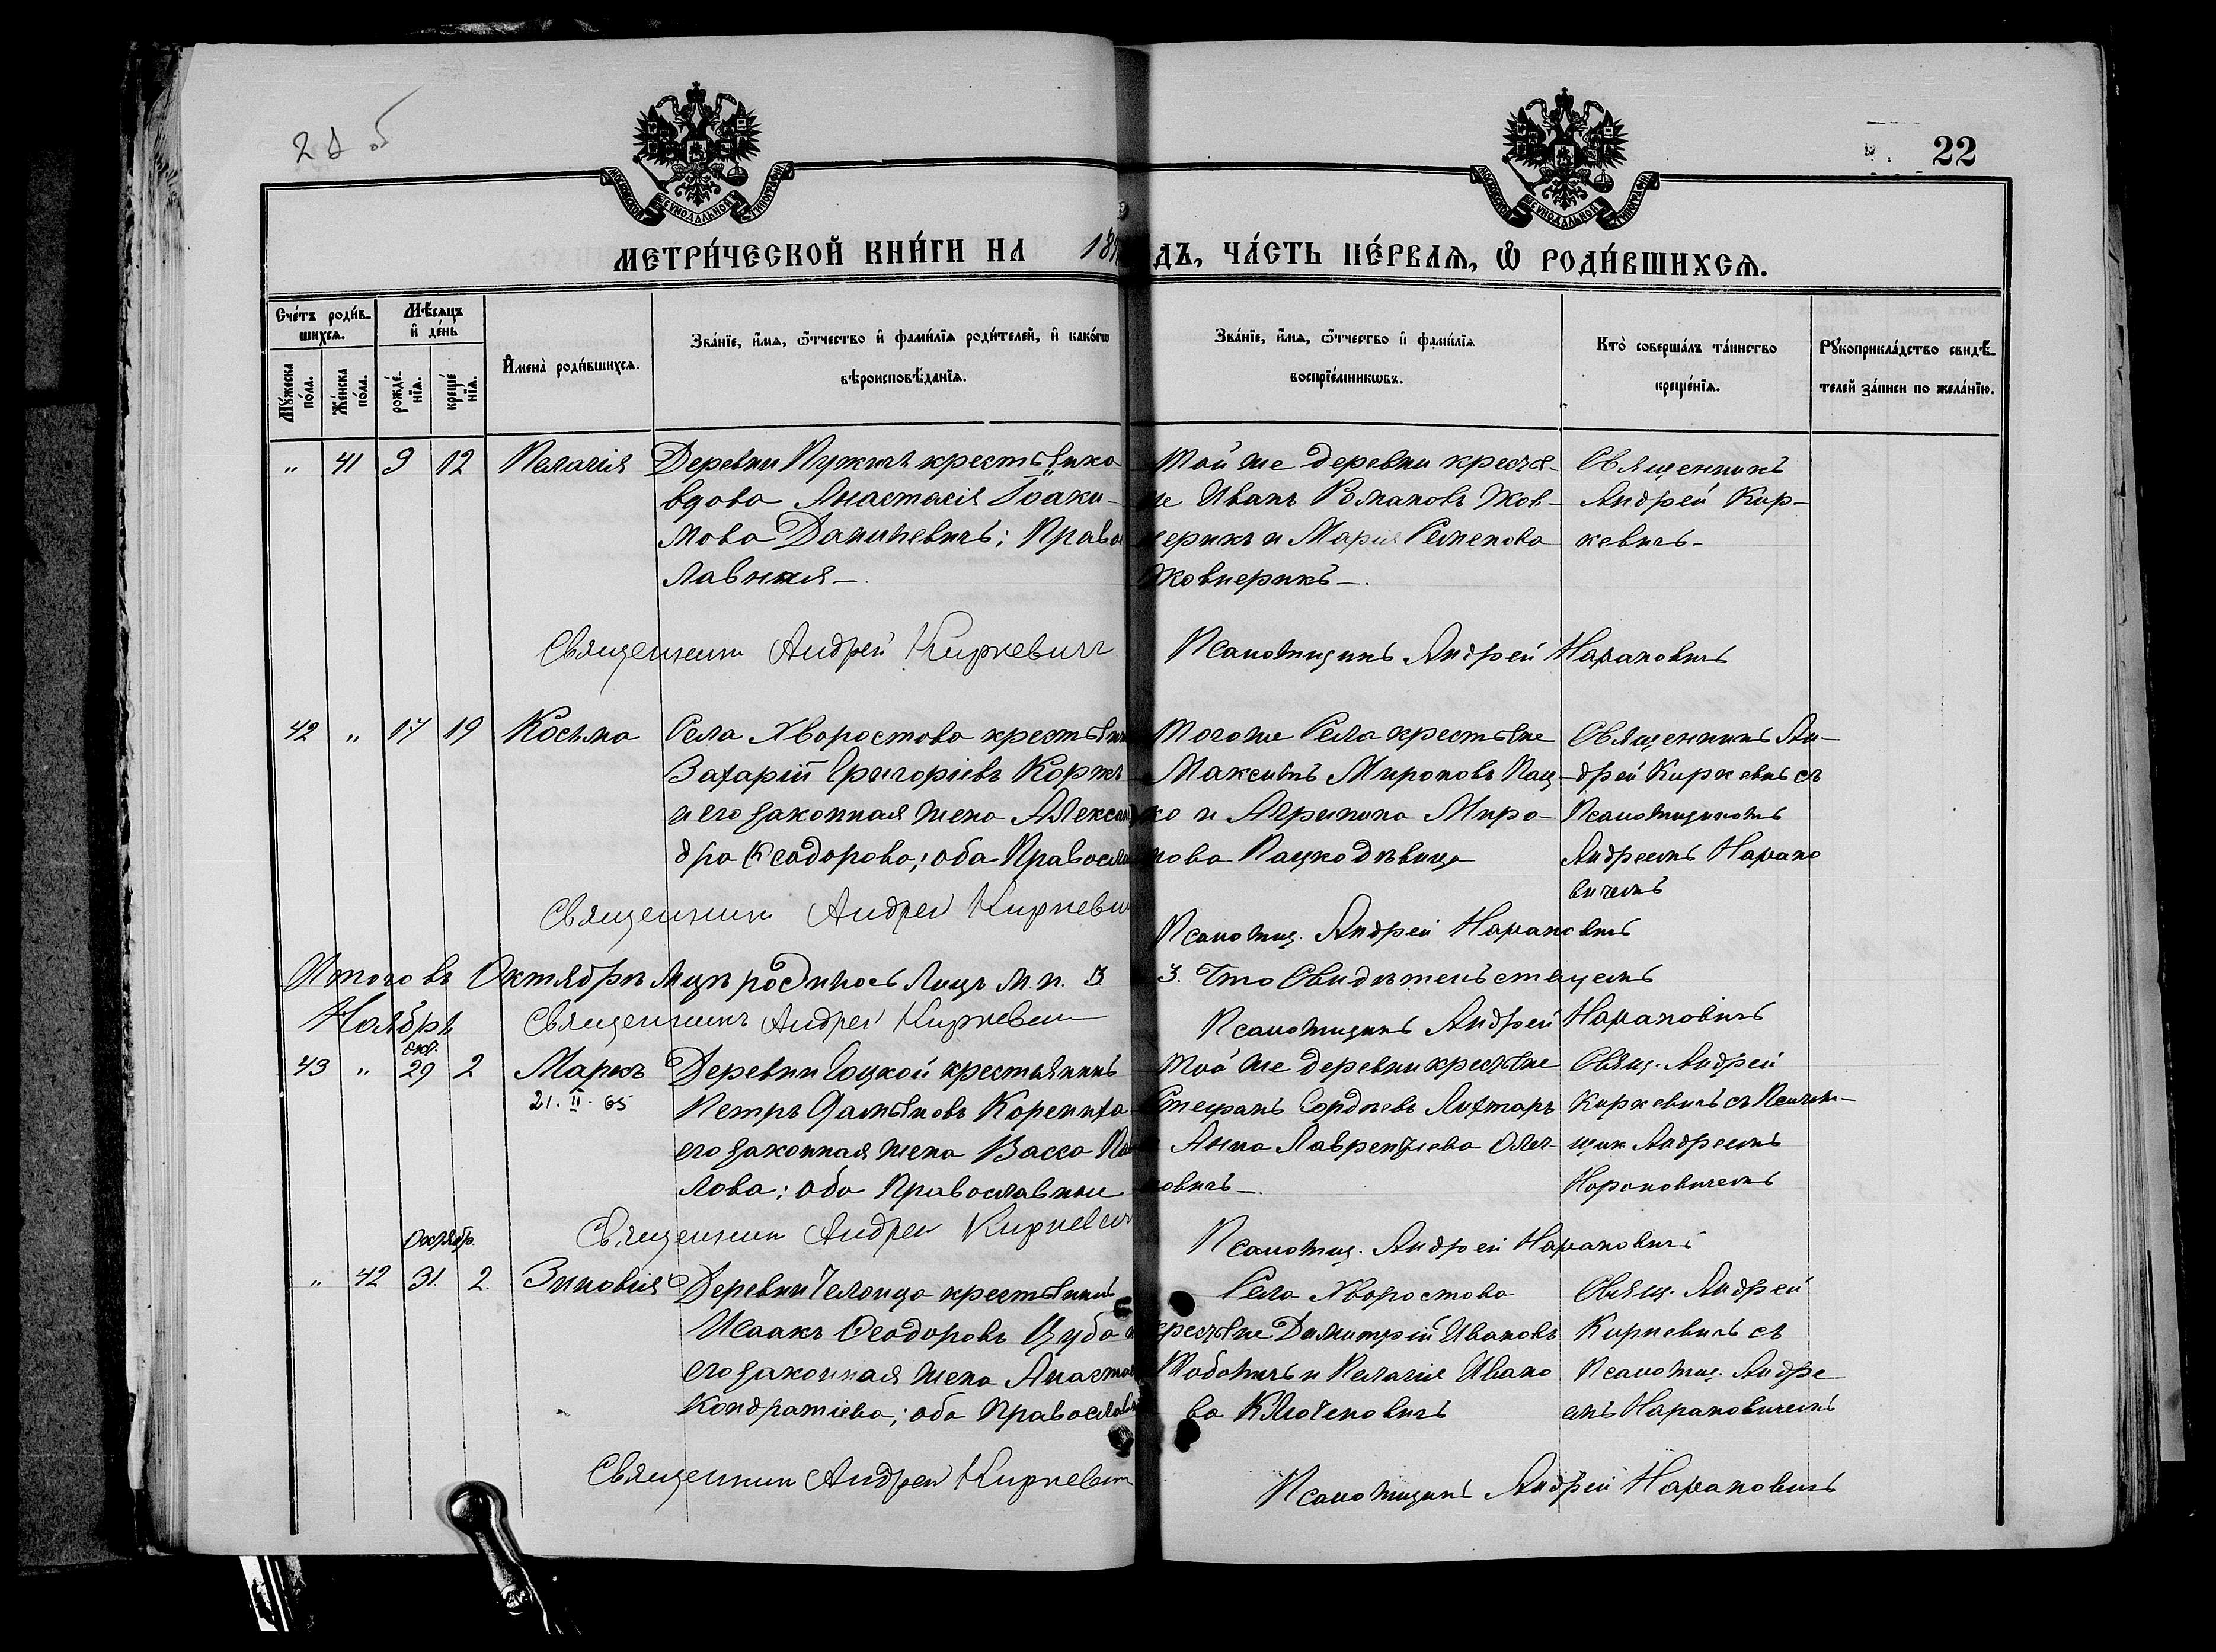 22
МЕТРИ́ЧЕСКОЙ КНИ́ГИ НА 18 ДЪ, ЧА́СТЬ ПЕ́РВАЯ, Ѡ РОДИ́ВШИХСЯ.
Сче́тъ роди́в-
шихся.
Му́жеска по́ла.
Же́нска по́ла.
Мѣ́сяцъ и де́нь
рожде́нїя.
креще́нїя.
И́мена роди́вшихся.
Зва́нїе, и́мя, ѻ́тчество и фами́лїя роди́телей, и како́гѡ
вѣроисповѣ́данїя.
Зва́нїе, и́мя, ѻ́тчество и фами́лїя
воспрїе́мникѡвъ.
Кто̀ соверша́лъ та́инство
креще́нїя.
Рꙋкоприкла́дство свидѣ́-
телей за́писи по жела́нїю.
" 41 9 12 Пелагія
Деревни Пужичъ крестьянка
вдова Анастасія Іоаки-
мова Данилевичъ; Право
лавная—.
Той же деревни крестья-
не Иванъ Романовъ Жов-
нерикъ и Марія Семенова
Жовнерикъ—.
Священникъ
Андрей Кир-
кевичъ-
Священник Андрей Киркевич
Псаломщикъ Андрей Нарановичъ
42 " 17 19 Косьма
Села Хворостова крестьянин
Захарій Григоріевъ Коржъ
и его законная жена Алексан
дра Ѳеодорова; оба Правосла
Того же Села крестьяне
Максимъ Мироновъ Пац-
ко и Агрипина Миро-
нова Пацко дѣвица
Священникъ Ан-
дрей Киркевичъ съ
Псаломщикомъ
Андреемъ Нарано
вичемъ
Священник Андрей Киркевич
Псаломщ. Андрей Нарановичъ
Итого въ Октябрѣ мцѣ родилось лицъ м. п. 3 3. Что Свидѣтельствуемъ
Священникъ Андрей Киркевич
Псаломщикъ Андрей Нарановичъ
Ноябрь
43 " Окт. 29 2 Маркъ
21. II. 65
Деревни Гоцкой крестьянинъ
Петръ Дамьяновъ Коренюха
его законная жена Васса
лова; оба Православные
Той же деревни крестьяне
Стефанъ Гордѣевъ Лихтаръ
Анна Лаврентьева
новичъ—.
Свящ. Андрей
Киркевичъ съ Псалом-
щик Андреемъ
Нороновичемъ
Священник Андрей Киркевич
Псаломщ. Андрей Нарановичъ
" 42 Октябр. 31. 2. Зиновія
Деревни Челонца крестьянинъ
Исаакъ Ѳеодоровъ Цуба и
его законная жена Анастас
Кондратіева; оба Православ
Села Хворостова
крестьяне Димитрій Ивановъ
и Пелагія Ивано
ва Ключеновичъ
Свящ. Андрей
Киркевичъ съ
Псаломщ. Андре
емъ Нарановичемъ
Священник Андрей Киркевич
Псаломщикъ Андрей Нарановичъ